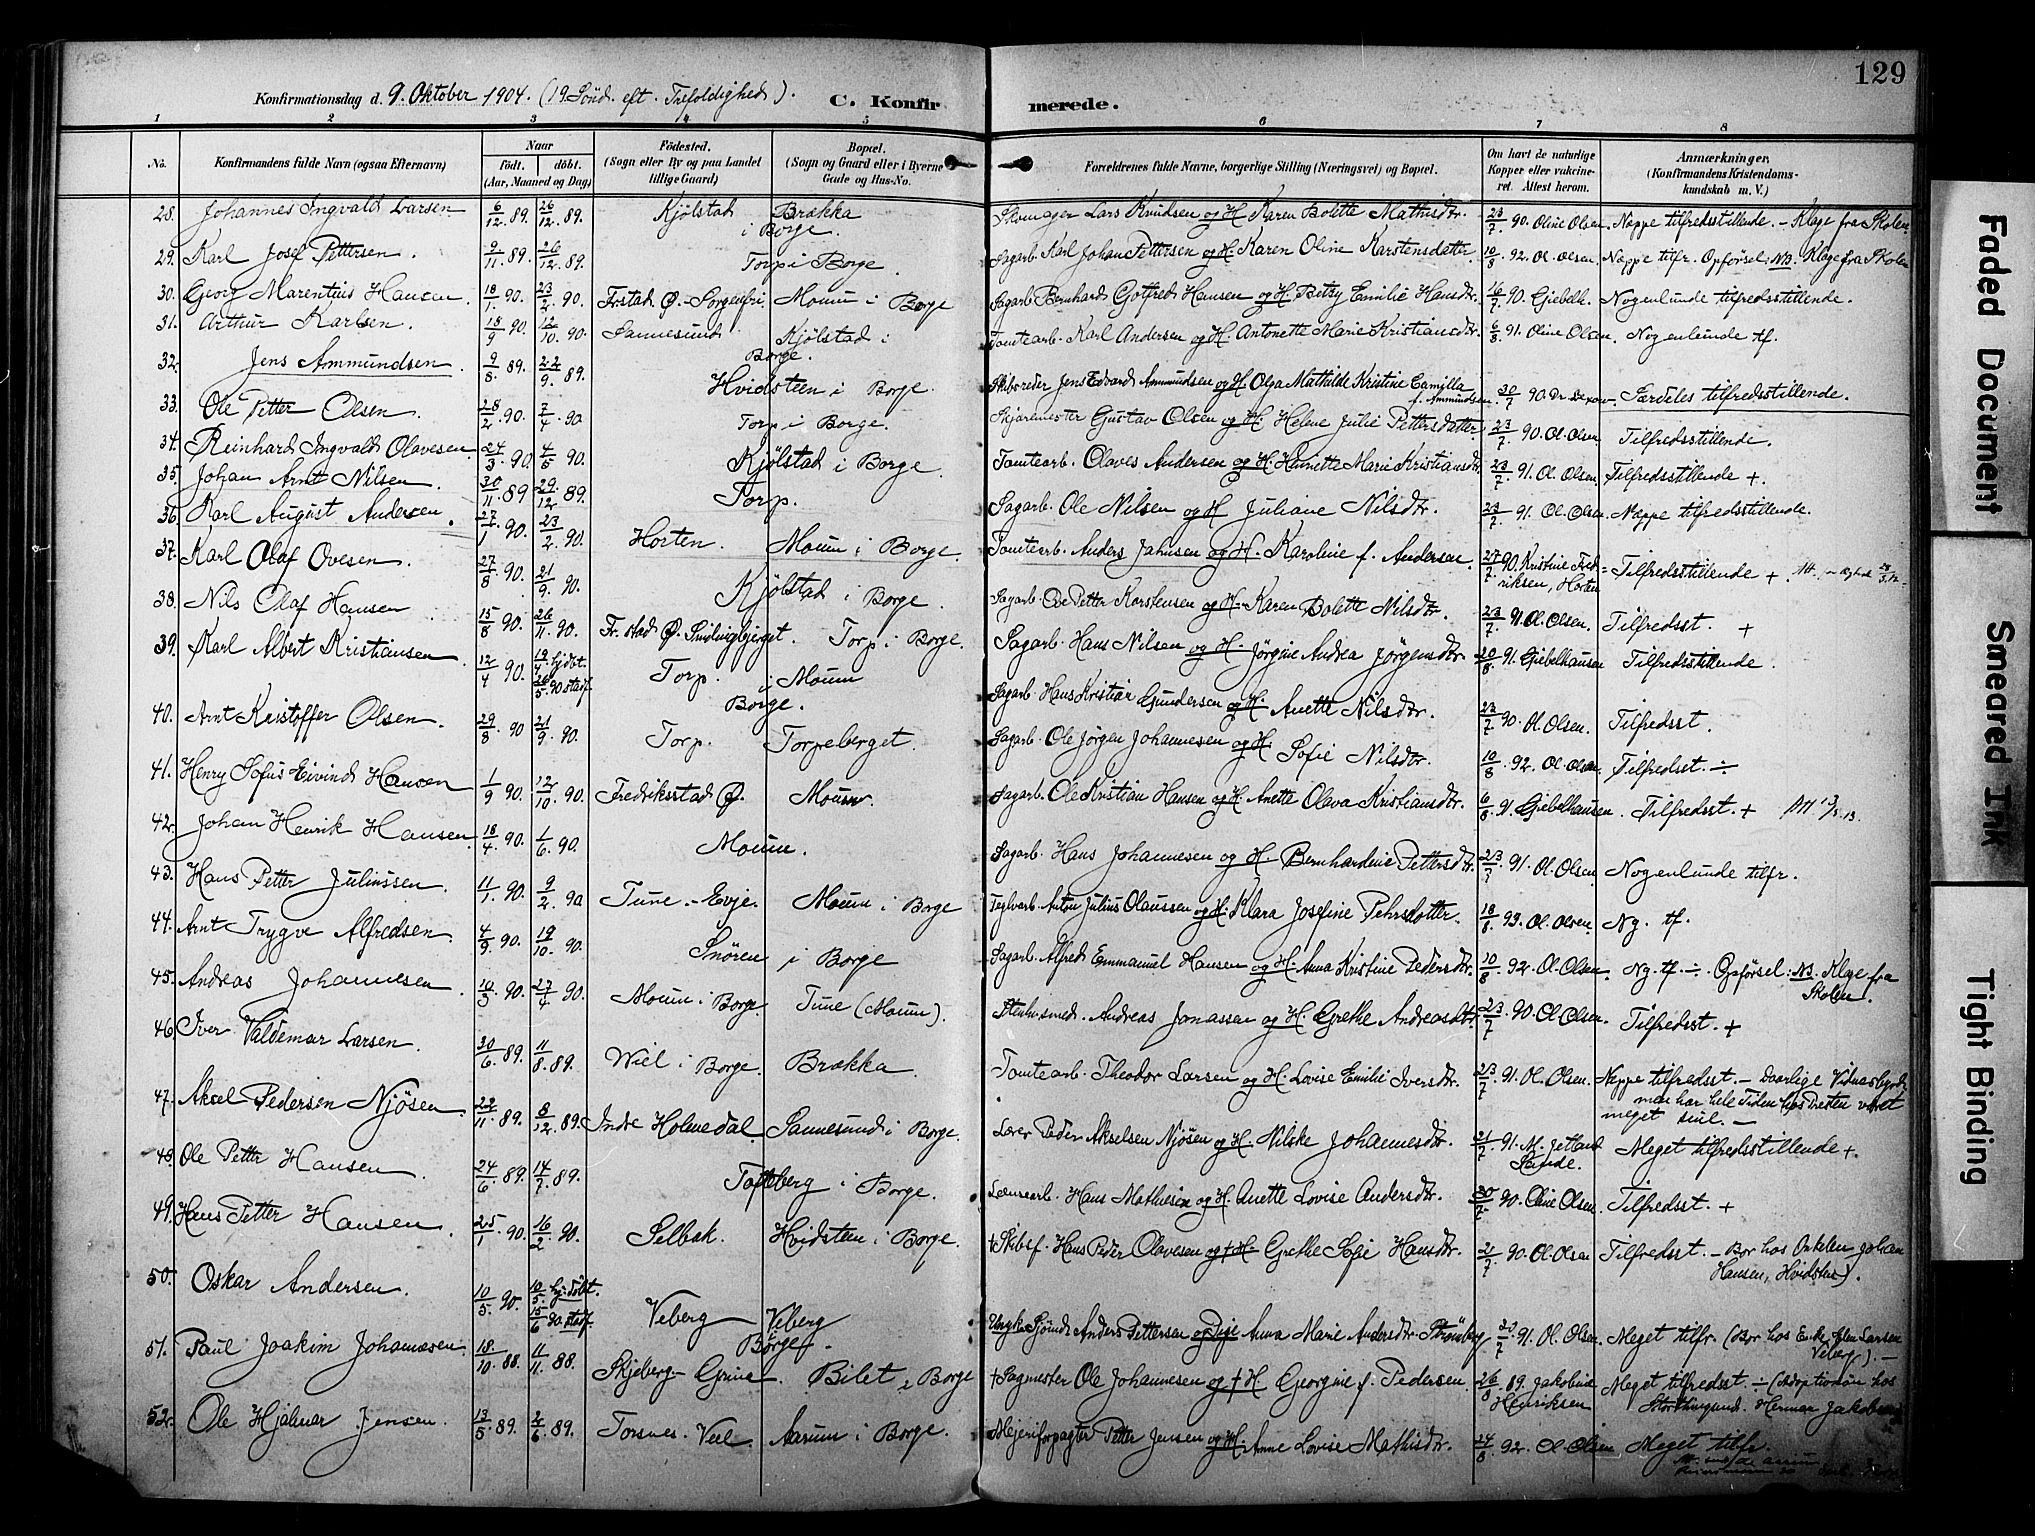 129
Konfirmationsdag d. 9. Oktober 1904. (19. Sönd. eft. Trefoldighed). C. Konfir merede.
1 2 3 4 5 6 7 8
No. Konfirmandens fulde Navn (ogsaa Efternavn) Naar født. døbt. (Aar, Maaned og Dag) Fødested. (Sogn eller By og paa Landet tillige Gaard) Bopæl. (Sogn og Gaard eller i Byerne Gade og Hus-No. Forældrenes fulde Navne, borgerlige Stilling (Næringsvei) og Bopæl. Om havt de naturlige Kopper eller vaccineret. Attest herom. Anmærkninger, (Konfirmandens Kristendomskundskab m. V.)
28. Johannes Ingvald Larsen 6/12. 89. 26/12. 89. Kjölstad Brækka i Borge. Skomager Lars Knudsen og H. Karen Bolette Mathisdtr. 23/7. 90. Oline Olsen. Neppe tilfredsstillende. - Klage fra Skolen
29. Karl Josef Pettersen. 9/11. 89. 26/12. 89. Torp i Borge. Sagarb. Karl Johan Pettersen og H. Karen Oline Karstensdatter 10/8. 92. Ol. Olsen. Neppe tilfr. Opførsel: NB. Klage fra Skolen
30. Georg Marentius Hansen. 18/1. 90. 23/2. 90. Frstad Ø. - Sorgenfri. Moum i Borge Sagarb. Bernhard Gotfred Hansen og H. Betsy Emilie Hansdtr. 16/7. 90. Giebelh. Nogenlunde tilfredsstillende.
31. Arthur Karlsen. 18/9 90. 12/10. 90. Sannesund Kjölstad i Borge. Tomtearb. Karl Andersen og H. Antonette Marie Kristiansdtr. 6/8. 91. Oline Olsen. Nogenlunde tf.
32. Jens Ammundsen. 9/8. 89. 22/9. 89. Hvidsteen i Borge. Skibsreder Jens Edvard Ammundsen og H. Olga Mathilde Kristine Camilla f. Ammundsen. 30/7 90. Dr. Særdeles tilfredsstillende.
33. Ole Petter Olsen. 28/2. 90. 7/4. 90. Torp i Borge. Skjæremester Gustav Olsen og H. Helene Julie Pettersdatter 23/7. 90. Ol. Olsen. Tilfredsstillende.
34. Reinhard Ingvald Olavesen. 24/3. 90. 4/5 90. Kjölstad i Borge. Tomtearb. Olaves Andersen og H. Marie Kristiansdtr. 23/7. 91. Ol. Olsen. Tilfredsstillende +.
35. Johan Arnt Nilsen. 30/11. 89 29/12. 89. Torp. Sagarb. Ole Nilsen og H. Juliane Nilsdtr. 23/7. 91. Ol. Olsen. Næppe tilfredsstillende.
36. Karl August Andersen. 27/1. 90. 23/2. 90. Horten. Moum i Borge. Tomtearb. Anders Jahnsen og H. Karoline f. Andersen. 27/7. 90. Kristine Fredriksen, Horten Tilfredsstillende +
37. Karl Olaf Ovesen. 27/8. 90. 21/9. 90. Kjölstad i Borge. Sagarb. Ove Petter Karstensen og H. Karen Bolette Nilsdtr. 23/7. 91. Ol. Olsen. Tilfredsst. +
38. Nils Olaf Hansen 15/8 90. 26/11. 90. Fr.stad Ø. Smilingbjerget. Torp i Borge. Sagarb. Hans Nilsen og H. Jörgine Andrea Jörgensdtr. 20/8. 91. Giebelhausen Tilfredsstillende.
39. Karl Albert Kristiansen. 12/4 90. 19/4. hjdöbt. 26/5. 90 stadf. Torp. Moum i Borge. Sagarb. Hans Kristian Gundersen og H. Anette Nilsdtr. 23/7. 90. Ol. Olsen. Tilfredsst.
40. Arnt Kristoffer Olsen. 29/8 90 21/9. 90. Torp. Torpeberget. Sagarb. Ole Jörgen Johannesen og H. Sofie Nilsdtr. 10/8. 92. Ol. Olsen. Tilfredsst. ÷
41. Henry Sofus Eivind Hansen 1/9 90. 12/10. 90. Fredriksstad Ø. Moum. Sagarb. Ole Kristian Hansen og H. Anette Olava Kristiansdtr. 6/8. 91. Giebelhausen. Tilfredsst. +
42. Johan Henrik Hansen 18/4 90. 1/6. 90. Moum. Sagarb. Hans Johannesen og H. Bernhardine Pettersdtr. 23/7. 91. Ol. Olsen. Nogenlunde tilfr.
43. Hans Petter Juliussen. 11/1. 90. 9/2. 90 Tune. - Evje. Moum i Borge Teglvarb. Anton Julius Olaussen og H. Klara Josefine Pehrsdotter. 18/8. 93. Ol. Olsen. Ng. tf.
44. Arnt Trygve Alfredsen. 4/9. 90. 19/10. 90. Snören i Borge Sagarb. Alfred Emmanuel Hansen og H. Anna Kristine Pedersdtr. 10/8. 92. Ol. Olsen. Ng. tf. ÷. Opførsel: NB. Klage fra Skolen.
45. Andreas Johannesen. 10/3. 90. 27/4. 90. Moum i Borge. Tune (Moum). Stenhusmed. Andreas Jonassen og H. Grethe Andreasdtr. 23/7. 90. Ol. Olsen. Tilfredsst. +
46. Iver Valdemar Larsen. 30/6. 89. 11/8. 89. Wiel i Borge. Brækka. Tomtearb. Theodor Larsen og H. Lovise Emilie Iversdtr. 23/7. 91. Ol. Olsen. Neppe tilfredsst. - Daarlige Vidnesbyrd men har hele Tiden hos Presten været meget snil. -
47. Aksel Pedersen Njösen. 22/11. 89. 8/12. 89. Indre Holmedal Sannesund i Borge. Lærer Peder Akselsen Njösen og H. Nilske Johannesdtr. 21/7. 91. M. Jetland Sande. Meget tilfredsstillende +.
48. Ole Petter Hansen. 24/6. 89. 14/7. 89. Tofteberg i Borge. Lænsearb. Hans Mathisen og H. Anette Lovise Andersdtr. 30/7 90. Oline Olsen. Tilfredsst. +
49. Hans Petter Hansen. 25/1. 90. 16/2. 90. Selbak. Hvidsteen i Borge. † Skibsf. Hans Peder Olavesen og † H. Grethe Sofie Hansdtr. 2/7 90. Ol. Olsen Tilfredsst. - Bor hos Onkelen Johan Hansen, Hvidsten).
50. Oskar Andersen. 10/5. 90. 10/5. hj.döbt. 15/6. 90 stadf. Veberg Veberg Borge. Ungk. Sjömd Anders Pettersen og Pige Anna Marie Andersdtr. Strömberg 23/7 91. Ol. Olsen. Meget tilfr. (Bor hos Enke Elen Larsen Veberg). -
51. Paul Joakim Johannesen. 18/10. 88. 11/11. 88. Skjeberg - Grime. Bilet i Borge † Sagmester Ole Johannesen og † H. Georgine f. Pedersen. 26/8. 89. Jakobine Henriksen Meget tilfredsst. ÷ (Adoptionön hos Storthingmd. Herman Jakobsen
52. Ole Hjalmar Jensen. 13/5. 89. 2/6. 89. Torsnes. Veel. Aarum i Borge. Mejeriforpagter Petter Jensen og H. Anne Lovise Mathisdtr. 24/8. 92. Ol. Olsen Meget tilfr.
Faded Document
Smeared Ink
Tight Binding